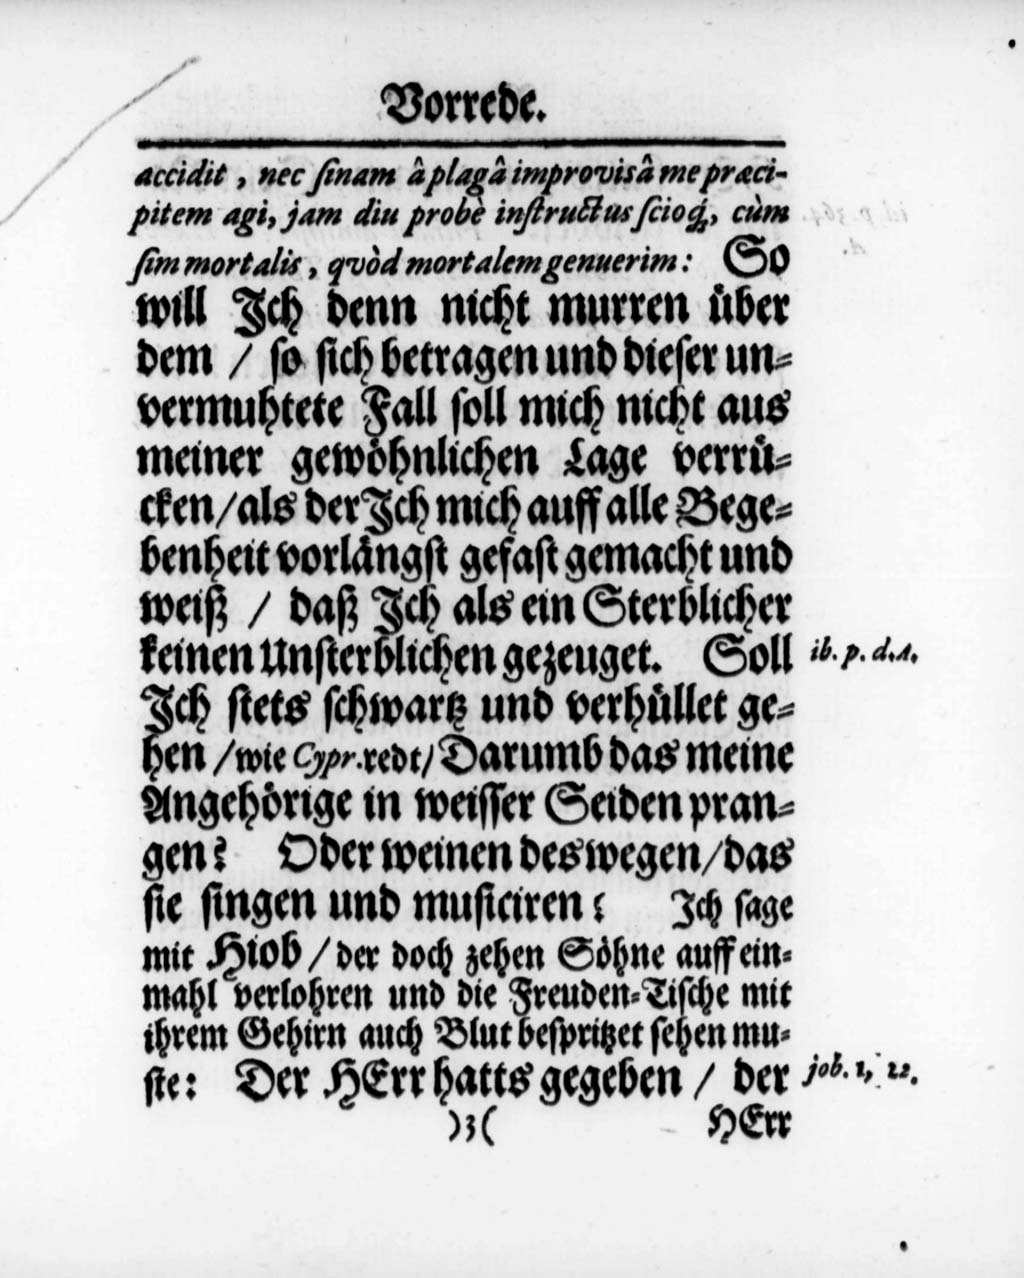 Vorrede.
accidit, nec ſinam â plagâ improvisâ me præci-
pitem agi, jam diu probè inſtructus ſcioq́;, cùm
ſim mortalis, qvòd mortalem genuerim: So
will Ich denn nicht murren über
dem / ſo ſich betragen und dieſer un-
vermuhtete Fall ſoll mich nicht aus
meiner gewöhnlichen Lage verrü-
cken/als der Ich mich auff alle Bege-
benheit vorlängſt gefaſt gemacht und
weiß / daß Ich als ein Sterblicher
keinen Unſterblichen gezeuget. Soll
ib. p. d. A.
Ich ſtets ſchwartz und verhüllet ge-
hen /wie Cypr. redt/Darumb das meine
Angehörige in weiſſer Seiden pran-
gen? Oder weinen deswegen/das
ſie ſingen und muſiciren? Ich ſage
mit Hiob / der doch zehen Söhne auff ein-
mahl verlohren und die Freuden-Tiſche mit
ihrem Gehirn auch Blut beſpritzet ſehen mu-
ſte: Der HErr hatts gegeben / der
job. 1, 22.
)3( HErr